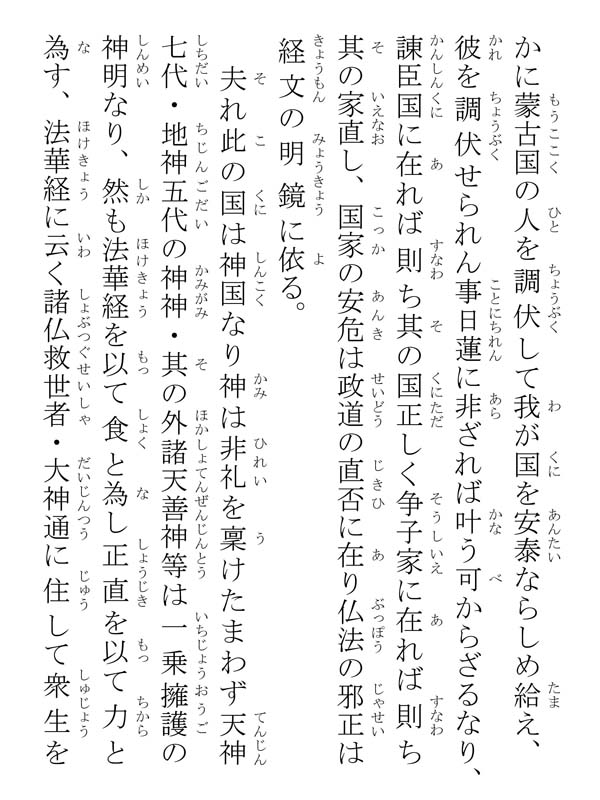 かに蒙古国の人を調伏して我が国を安泰ならしめ給え、
彼を調伏せられん事日蓮に非ざれば叶う可からざるなり、
諌臣国に在れば則ち其の国正しく争子家に在れば則ち
其の家直し、国家の安危は政道の直否に在り仏法の邪正は
経文の明鏡に依る。
夫れ此の国は神国なり神は非礼を稟けたまわず天神
七代・地神五代の神神・其の外諸天善神等は一乗擁護の
神明なり、然も法華経を以て食と為し正直を以て力と
為す、法華経に云く諸仏救世者・大神通に住して衆生を